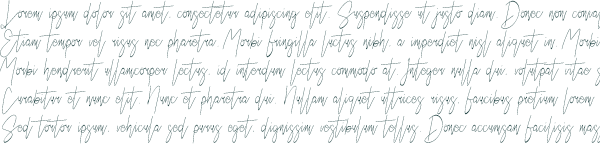 Lorem ipsum dolor sit amet, consectetur adipiscing elit. Suspendisse ut justo diam. Donec non conva
Etiam tempor vel risus nec pharetra. Morbi fringilla luctus nibh, a imperdiet nisl aliquet in. Morbi
Morbi hendrerit ullamcorper lectus, id interdum lectus commodo at. Integer nulla dui, volutpat vitae s
Curabitur et nunc elit. Nunc et pharetra dui. Nullam aliquet ultrices risus, faucibus pretium lorem
Sed tortor ipsum, vehicula sed purus eget, dignissim vestibulum tellus. Donec accumsan facilisis mas